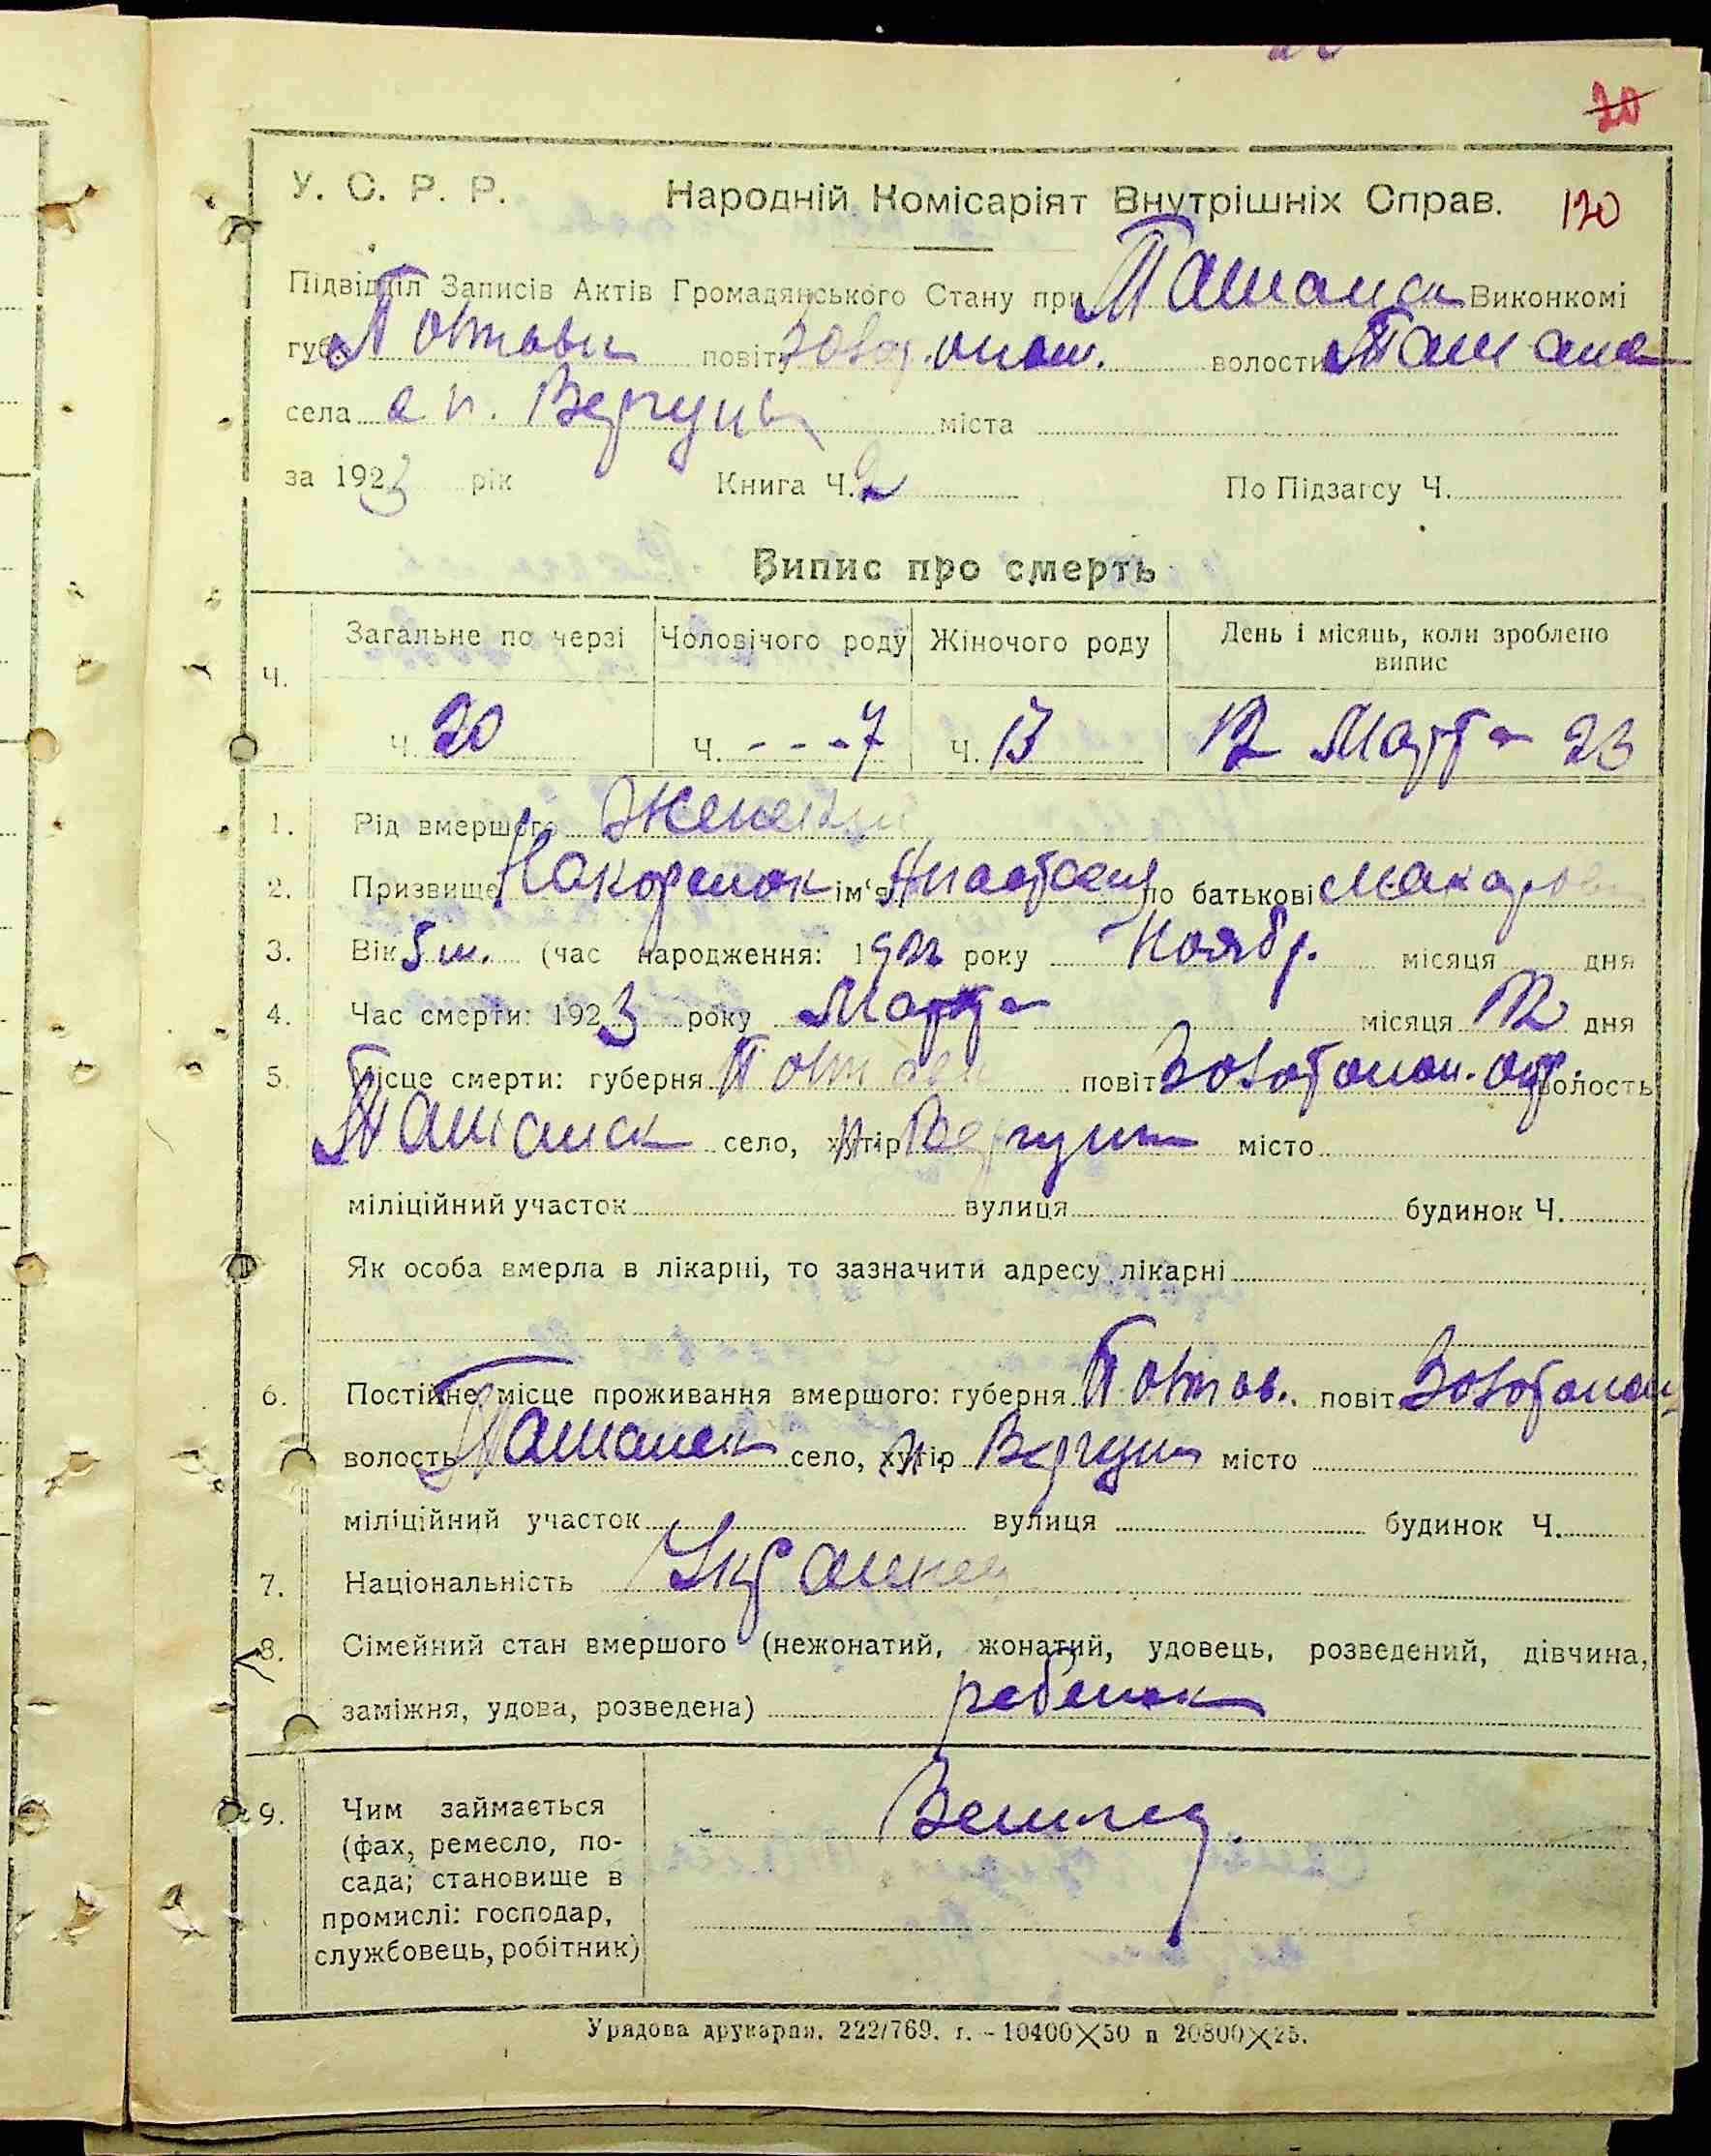 20
У. С. Р. Р. Народній Комісаріят Внутрішніх Справ. 120
Підвідділ Записів Актів Громадянського Стану при Ташанск Виконкомі
губ. Полтавск повіту Золотонош. волости Ташанск
села с х. Вергуны міста
за 1923 рік Книга Ч. 2 По Підзагсу Ч.
Випис про смерть
Ч. Загальне по черзі Чоловічого роду Жіночого роду День і місяць, коли зроблено випис
Ч. 20 Ч. - - - 7 Ч. 13 12 Марта 23
1. Рід вмершого Женский
2. Призвище ім'я Анастасия по батькові Макаров
3. Вік 5 м. (час народження: 1922 року Ноябр. місяця дня
4. Час смерти: 1923 року Марта місяця 12 дня
5. Місце смерти: губерня Полтавск повіт Золотонош. окр. волость
Ташанск село, хутір Вергуны місто
міліційний участок вулиця будинок Ч.
Як особа вмерла в лікарні, то зазначити адресу лікарні
6. Постійне місце проживання вмершого: губерня Полтав. повіт Золотонош
волость Ташанск село, хутір Вергуны місто
міліційний участок вулиця будинок Ч.
7. Національність
8. Сімейний стан вмершого (нежонатий, жонатий, удовець, розведений, дівчина,
заміжня, удова, розведена) ребенок
9. Чим займається
(фах, ремесло, по-
сада; становище в
промислі: господар,
службовець, робітник)
Землед.
Урядова друкарня. 222/769. г. - 10400×50 п 20800×25.